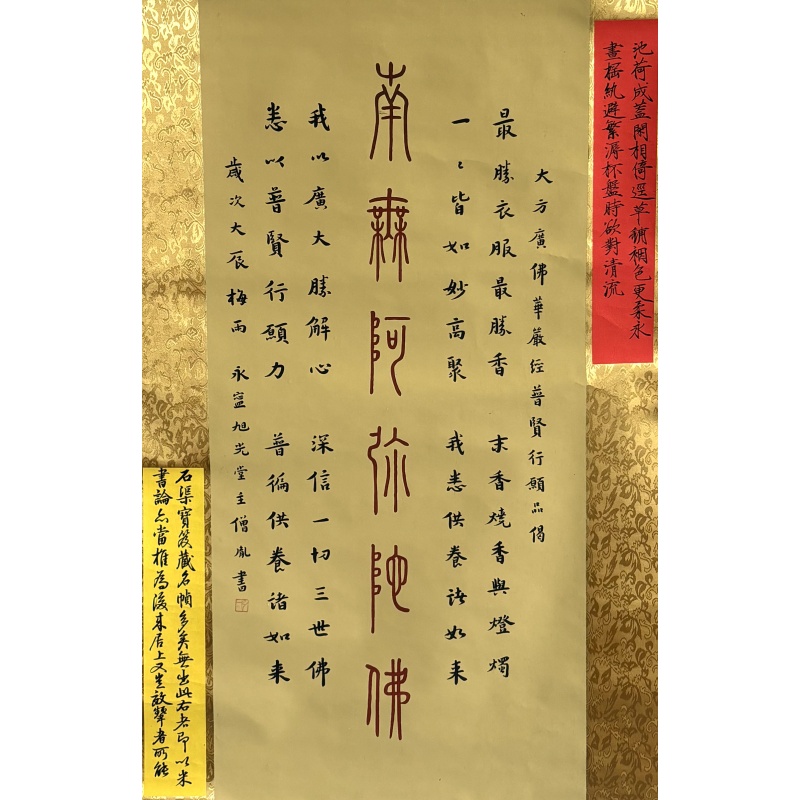 池荷成蓋閒相倚逕草鋪裀色更柔永
晝搖紈避繁溽杯盤時欲對清流
大方廣佛華嚴經普賢行願品偈
最勝衣服最勝香 末香燒香與燈燭
一〻皆如妙高聚 我悉供養諸如来
南無阿弥陀佛
我以廣大勝解心 深信一切三世佛
悉以普賢行願力 普徧供養諸如来
歲次大辰梅雨 永寧旭光堂主僧胤書
石渠寶笈藏名帖多矣無出此右者即以米
書論亦當推為後来居上又豈效顰者所能